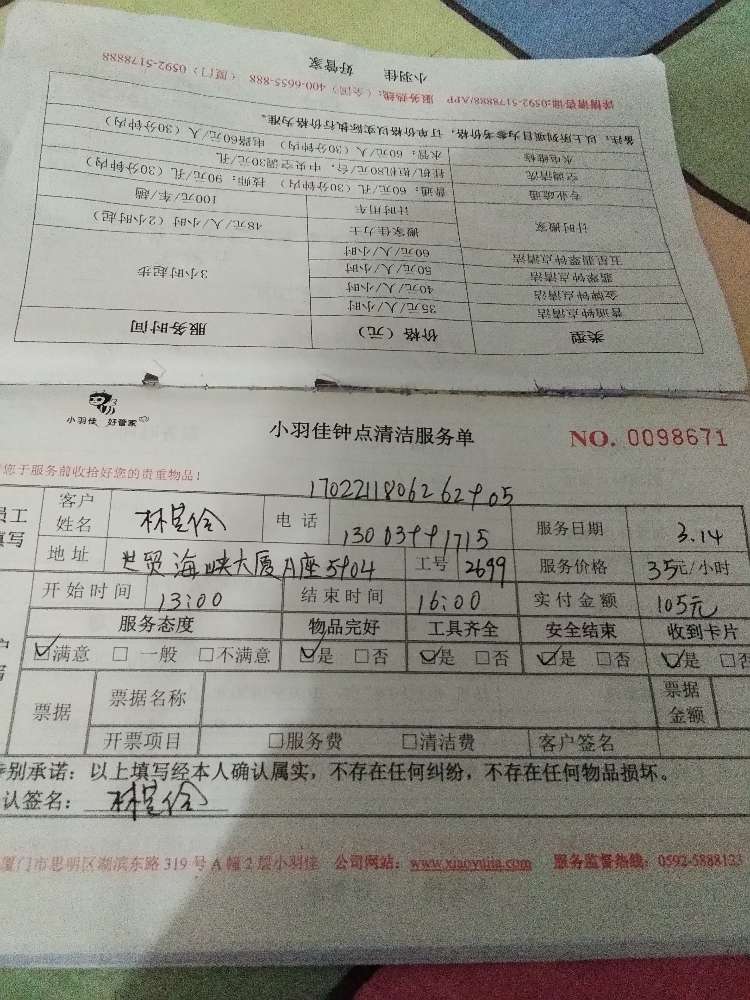 小羽佳 好管家
详情请咨询:0592-5178888/APP 服务热线:(全国)400-6655-888 (厦门)0592-5178888
类型 价格(元) 服务时间
普通钟点清洁 35元/人/小时 3小时起步
金牌钟点清洁 40元/人/小时
翡翠钟点清洁 50元/人/小时
五星翡翠钟点清洁 60元/人/小时
计时搬家 搬家佳力士 48元/人/小时(2小时起)
计时用车 100元/车/趟
专业疏通 普通:60元/孔(30分钟内) 技师:90元/孔(30分钟内)
空调清洗 挂机/柜机80元/台,中央空调30元/孔
水电维修 水管:60元/人(30分钟内) 电路60元/人(30分钟内)
备注:以上所列项目为参考价格,订单价格以实际执行价格为准。
小羽佳 好管家
小羽佳钟点清洁服务单 NO. 0098671
您于服务前收拾好您的贵重物品!
员工 客户姓名 电话 13003991715 服务日期 3.14
填写 地址 世贸海峡大厦A座5904 工号 2699 服务价格 35元/小时
开始时间 13:00 结束时间 16:00 实付金额 105元
服务态度 物品完好 工具齐全 安全结束 收到卡片
☑满意 □一般 □不满意 ☑是 □否 ☑是 □否 ☑是 □否 ☑是 □否
票据 票据名称 票据金额
开票项目 □服务费 □清洁费 客户签名
特别承诺:以上填写经本人确认属实,不存在任何纠纷,不存在任何物品损坏。
认签名:
厦门市思明区湖滨东路319号A幢2层小羽佳 公司网站:www.xiaoyujia.com 服务监督热线:0592-5888123